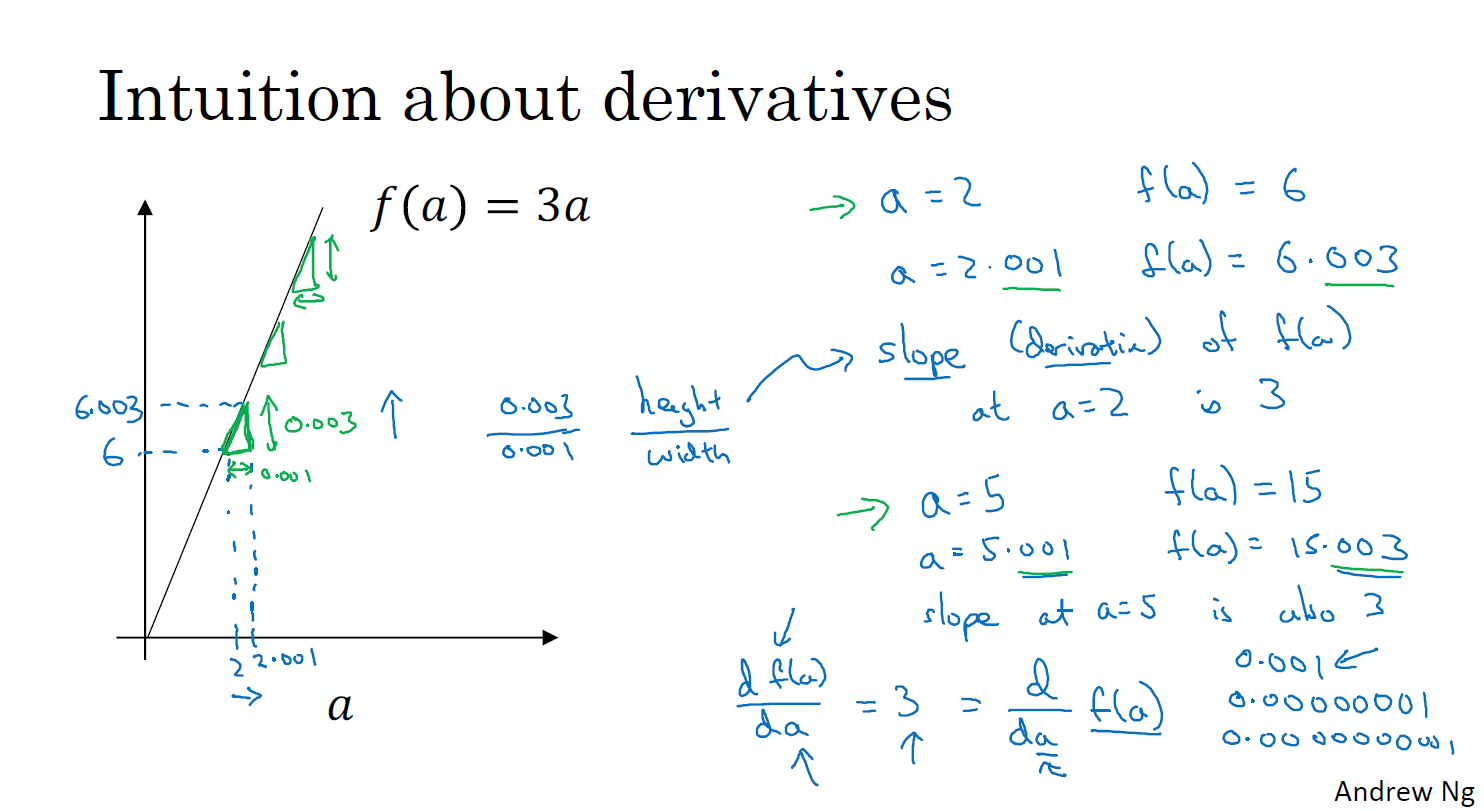 Intuition about derivatives
f(a) = 3a
6.003
6
0.003
0.001
2 2.001
a
0.003
0.001
height
width
a = 2 f(a) = 6
a = 2.001 f(a) = 6.003
slope (derivative) of f(a)
at a=2 is 3
a = 5 f(a) = 15
a = 5.001 f(a) = 15.003
slope at a=5 is also 3
d f(a)
da
= 3 =
d
da
f(a)
0.001
0.00000001
0.0000000001
Andrew Ng